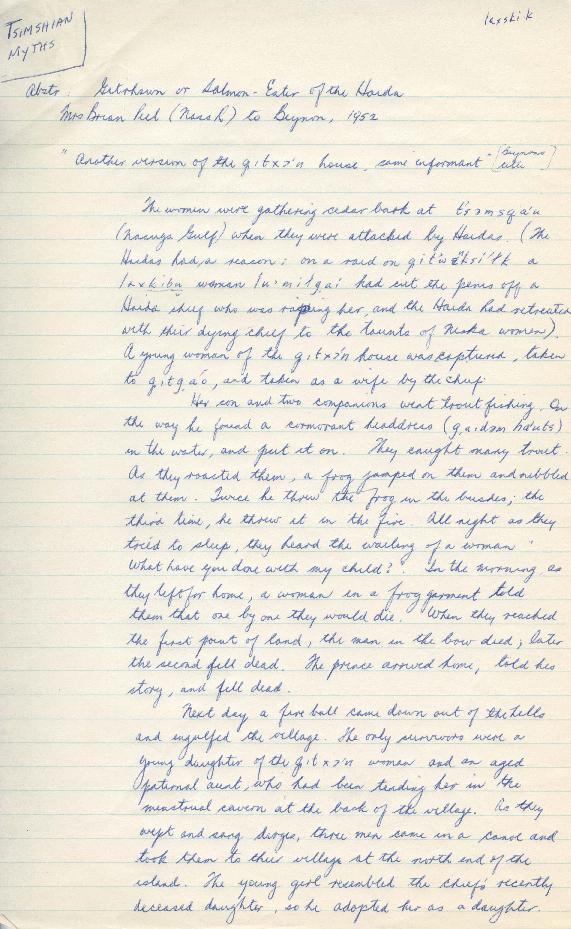 TSIMSHIAN
MYTHS
laxski·k
Abstr: Gitrhawn or Salmon-Eater of the Haida
Mrs Brian Peel (Nass R) to Beynon, 1952
"Another version of the g̣it x ɔ'n house, same informant" [Beynon's
title]
The women were gathering cedar bark at
(Nasoga Gulf) when they were attacked by Haidas. (The
Haidas had a reason: on a raid on a
laxkibu woman lu·milgai had cut the penis off a
Haida chief who was raping her, and the Haida had retreated
with their dying chief to the taunts of Niska women).
A young woman of the g̣itxɔ'n house was captured, taken
to g̣itg̣a'o, and taken as a wife by the chief.
Her son and two companions went trout fishing. On
the way he found a cormorant headdress (g̣aidəm ha'uts)
in the water, and put it on. They caught many trout.
As they roasted them, a frog jumped on them and nibbled
at them. Twice he threw the frog in the bushes; the
third time, he threw it in the fire. All night as they
tried to sleep, they heard the wailing of a woman "
What have you done with my child?". In the morning, as
they left for home, a woman in a frog garment told
them that one by one they would die. When they reached
the first point of land, the man in the bow died; later
the second fell dead. The prince arrived home, told his
story, and fell dead.
Next day a fire ball came down out of the hills
and engulfed the village. The only survivors were a
young daughter of the g̣itxɔ'n woman and an aged
paternal aunt, who had been tending her in the
menstrual cavern at the back of the village. As they
wept and sang dirges, three men came in a canoe and
took them to their village at the north end of the
island. The young girl resembled the chief's recently
deceased daughter, so he adopted her as a daughter.